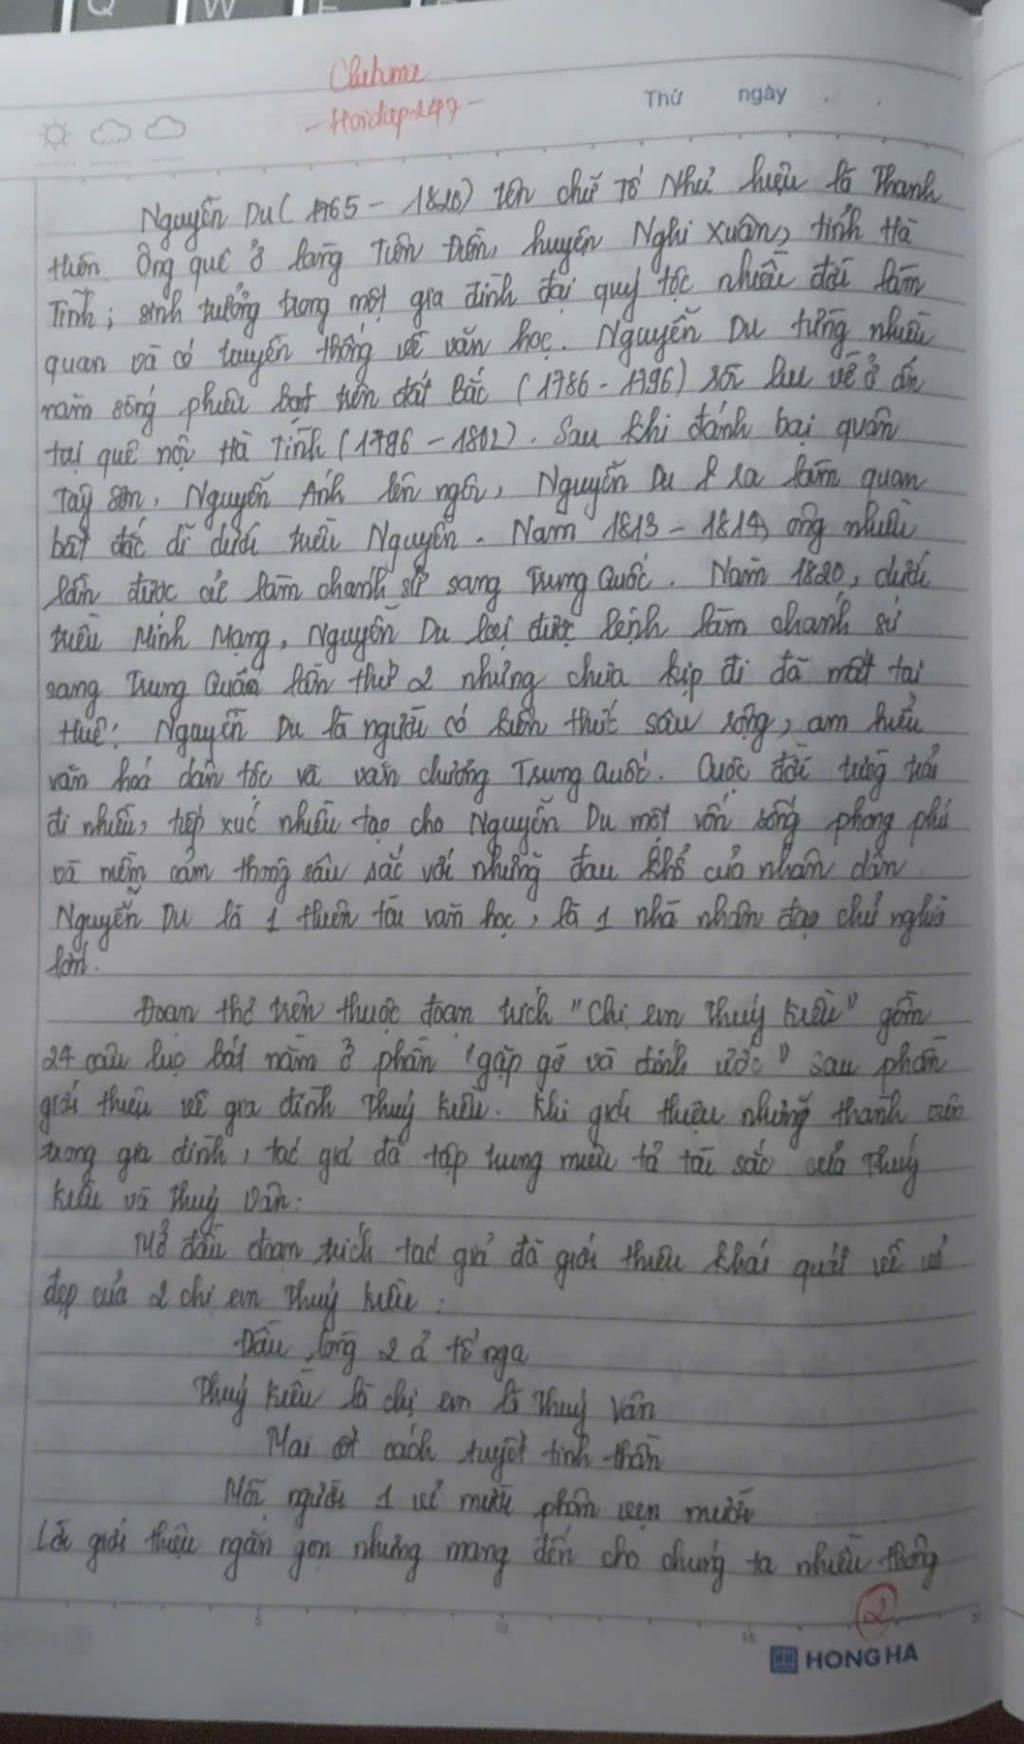 Q W E
Clulume
- Hoidap247 -
Thứ ngày
Nguyễn Du ( 1765 - 1820) tên chữ Tố Như hiệu là Thanh
Hiên. Ông quê ở làng Tiên Điền, huyện Nghi Xuân, tỉnh Hà
Tĩnh; sinh trưởng trong một gia đình đại quý tộc nhiều đời làm
quan và có truyền thống về văn học. Nguyễn Du từng nhiều
năm sống phiêu bạt trên đất Bắc (1786 - 1796) rồi lui về ở ẩn
tại quê nội Hà Tĩnh (1796 - 1802). Sau khi đánh bại quân
Tây Sơn, Nguyễn Ánh lên ngôi, Nguyễn Du ra làm quan
bất đắc dĩ dưới triều Nguyễn. Năm 1813 - 1814, ông nhiều
lần được cử làm chánh sứ sang Trung Quốc. Năm 1820, dưới
triều Minh Mạng, Nguyễn Du loại được lệnh làm chánh sứ
sang Trung Quốc lần thứ 2 nhưng chưa kịp đi đã mất tại
Huế. Nguyễn Du là người có kiến thức sâu rộng, am hiểu
văn hoá dân tộc và văn chương Trung Quốc. Cuộc đời từng trải
đi nhiều, tiếp xúc nhiều tạo cho Nguyễn Du một vốn sống phong phú
và niềm cảm thông sâu sắc với những đau khổ của nhân dân.
Nguyễn Du là 1 thiên tài văn học, là 1 nhà nhân đạo chủ nghĩa
lớn.
Đoạn thơ trên thuộc đoạn trích "Chị em Thuý Kiều" gồm
24 câu lục bát nằm ở phần "gặp gỡ và đính ước" sau phần
giới thiệu về gia đình Thuý Kiều. Khi giới thiệu những thành viên
trong gia đình, tác giả đã tập trung miêu tả tài sắc của Thuý
Kiều và Thuý Vân.
Mở đầu đoạn trích tác giả đã giới thiệu khái quát về vẻ
đẹp của 2 chị em Thuý Kiều:
Đầu lòng 2 ả tố nga
Thuý Kiều là chị em là Thuý Vân
Mai cốt cách tuyết tinh thần
Mỗi người 1 vẻ mười phân vẹn mười
Lời giới thiệu ngắn gọn nhưng mang đến cho chúng ta nhiều thông
2
5 10 15
HONG HA